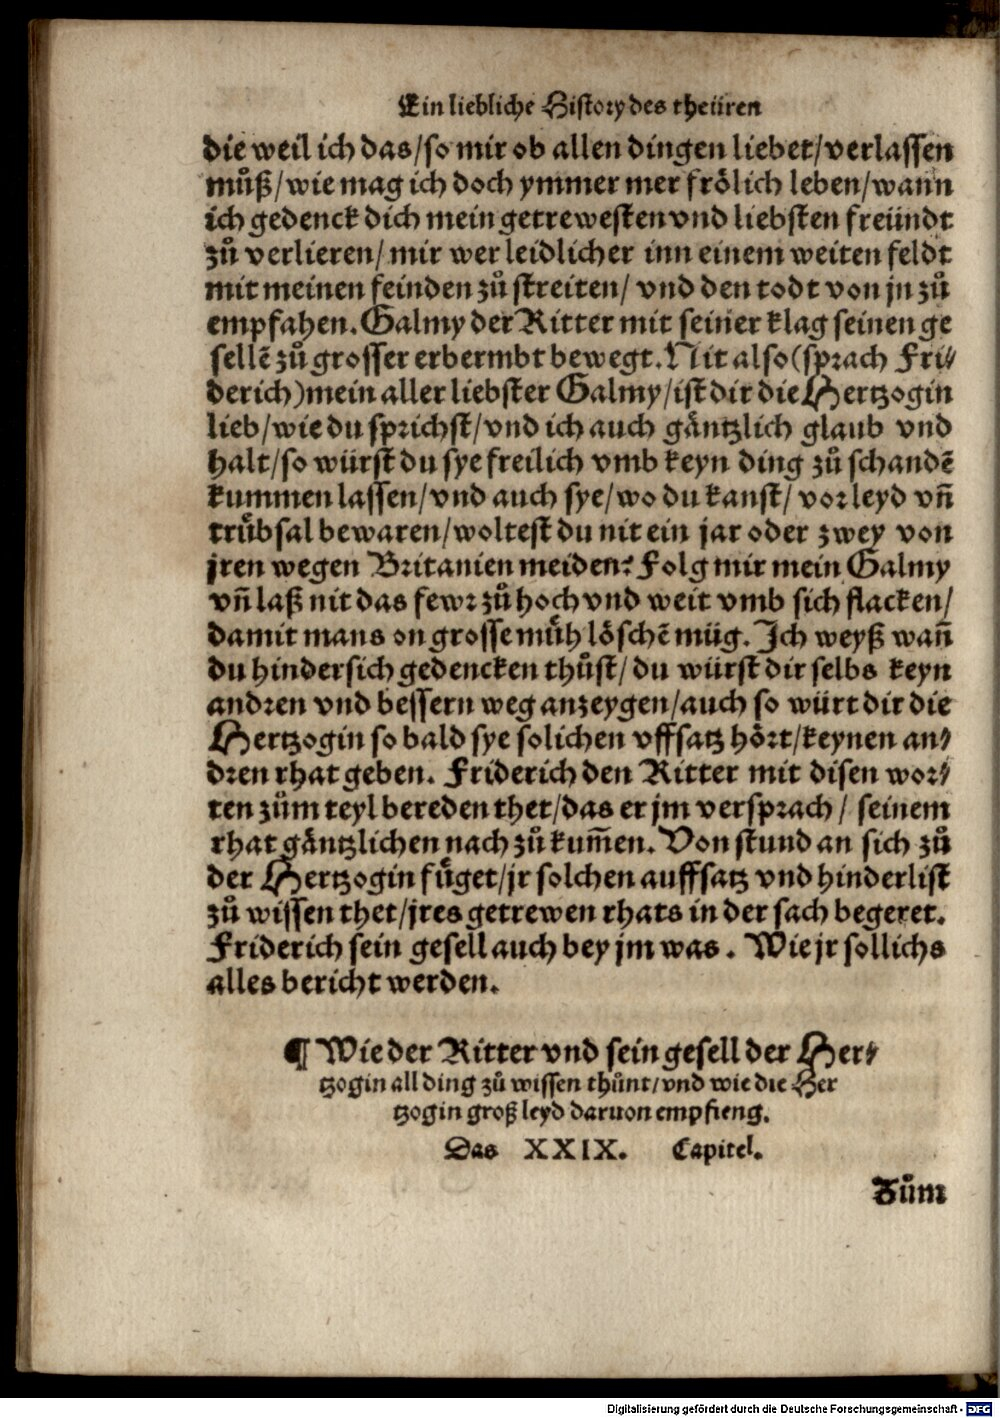 Ein liebliche History des theüren
die weil ich das/so mir ob allen dingen liebet/verlassen
můß/wie mag ich doch ymmer mer frölich leben/wann
ich gedenck dich mein getrewesten vnd liebsten freündt
zů verlieren/mir wer leidlicher inn einem weiten feldt
mit meinen feinden zů streiten/ vnd den todt von jn zů
empfahen. Galmy der Ritter mit seiner klag seinen ge
sellẽ zů grosser erbermbt bewegt. Nit also (sprach Fri⸗
derich) mein aller liebster Galmy/ist dir die Hertzogin
lieb/wie du sprichst/vnd ich auch gäntzlich glaub vnd
halt/so würst du sye freilich vmb keyn ding zů schandẽ
kummen lassen/vnd auch sye/wo du kanst/ vor leyd vñ
trübsal bewaren/woltest du nit ein jar oder zwey von
jren wegen Britanien meiden? Folg mir mein Galmy
vñ laß nit das fewr zů hoch vnd weit vmb sich flacken/
damit mans on grosse müh löschẽ müg. Ich weyß wañ
du hindersich gedencken thůst/du würst dir selbs keyn
andren vnd bessern weg anzeygen/auch so würt dir die
Hertzogin so bald sye solichen vffsatz hört/keynen an⸗
dren rhat geben. Friderich den Ritter mit disen wor⸗
ten zům teyl bereden thet/das er jm versprach / seinem
rhat gäntzlichen nach zů kum̃en. Von stund an sich zů
der Hertzogin füget/jr solchen auffsatz vnd hinderlist
zů wissen thet/jres getrewen rhats in der sach begeret.
Friderich sein gesell auch bey jm was. Wie jr sollichs
alles bericht werden.
¶ Wie der Ritter vnd sein gesell der Her⸗
tzogin all ding zů wissen thůnt/vnd wie die Her
tzogin groß leyd daruon empfieng.
Das XXIX. Capitel.
Zům
Digitalisierung gefördert durch die Deutsche Forschungsgemeinschaft - DFG